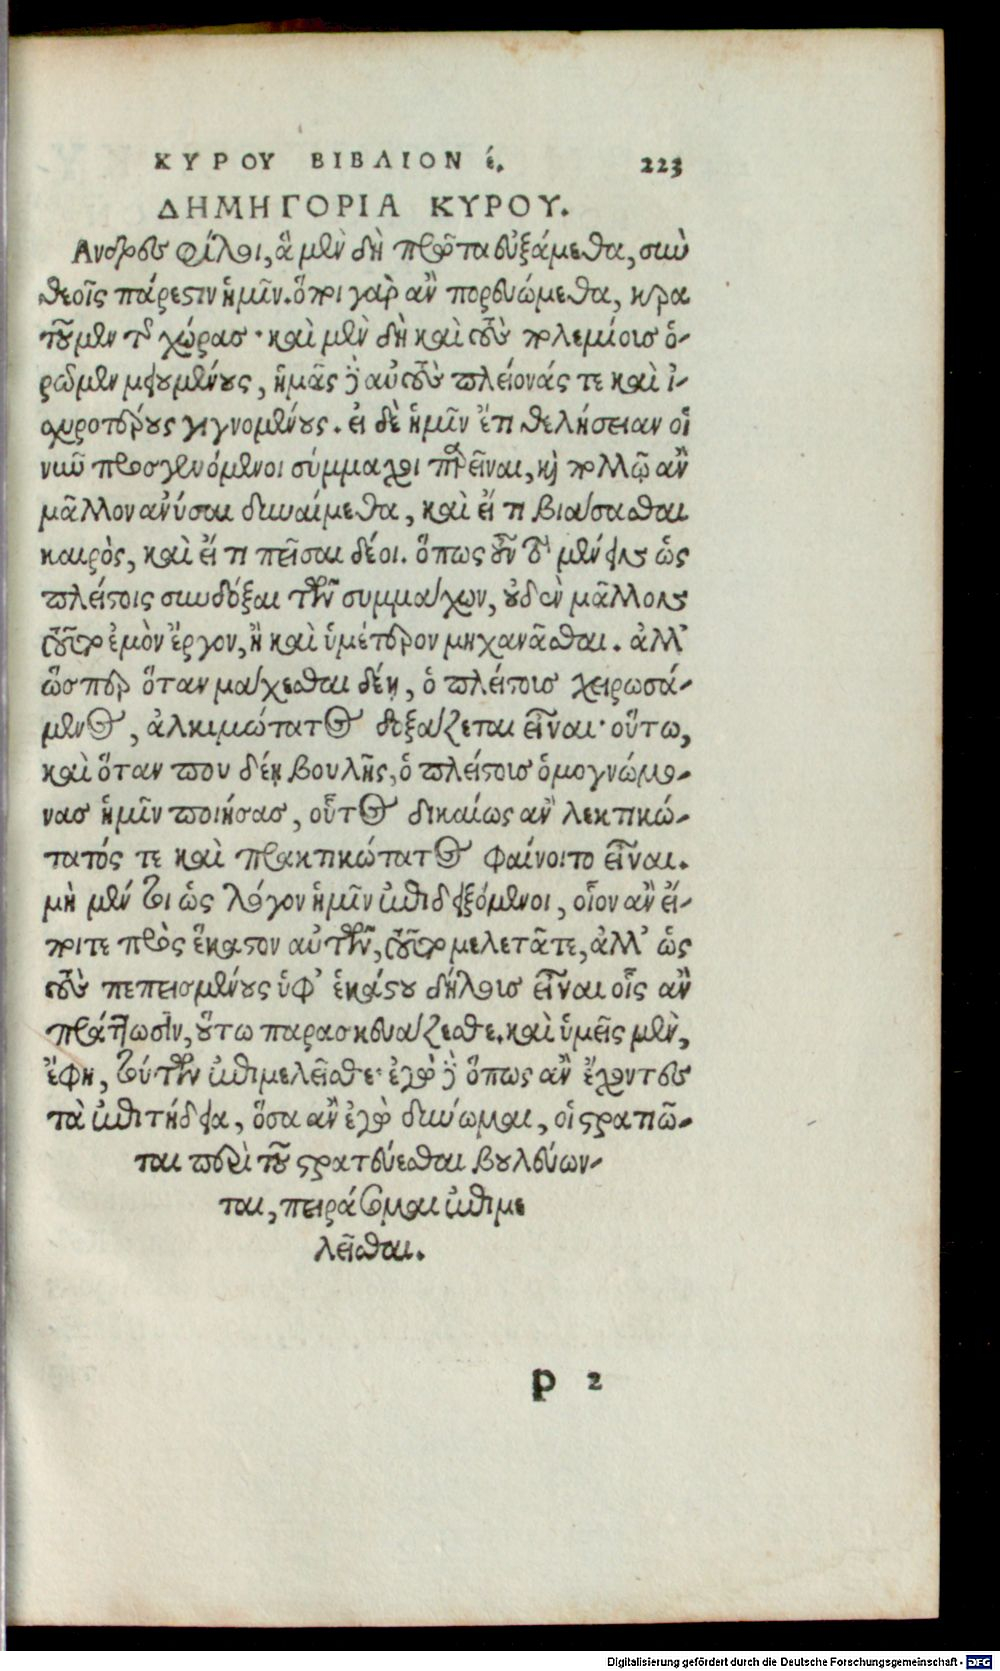 ΚΥΡΟΥ ΒΙΒΛΙΟΝ έ. 223
ΔΗΜΗΓΟΡΙΑ ΚΥΡΟΥ.
Ανδρες φίλοι, ἃ μὲν δὴ πρῶτα εὐξάμεθα, σιω
θεοῖς πάρεστιν ἡμῖν. ὅποι γὰρ ἂν πορευώμεθα, κρα
τοῦμεν τῆς χώρας· καὶ μὲν δὴ καὶ τοὺς πολεμίους ὁ-
ρῶμεν μειουμένους, ἡμᾶς δὲ αὐτοὺς πλείονάς τε καὶ ἰ-
χυροτέρους γιγνομένους. εἰ δὲ ἡμῖν ἔτι θελήσειαν οἱ
νῦν προσγενόμενοι σύμμαχοι παρεῖναι, καὶ πολλῷ ἂν
μᾶλλον ἀνύσαι δυναίμεθα, καὶ εἴ τι βιάσασθαι
καιρὸς, καὶ εἴ τι πεῖσαι δέοι. ὅπως οὖν τὸ μένειν ὡς
πλείστοις συνδόξαι τῶν συμμάχων, οὐδὲν μᾶλλον
τοῦτο ἐμὸν ἔργον, ἢ καὶ ὑμέτερον μηχανᾶσθαι. ἀλλ'
ὥσπερ ὅταν μάχεσθαι δέῃ, ὁ πλείστους χειρωσά-
μενος, ἀλκιμώτατος δοξάζεται εἶναι· οὕτω,
καὶ ὅταν που δέῃ βουλῆς, ὁ πλείστους ὁμογνώμο-
νας ἡμῖν ποιήσας, οὗτος δικαίως ἂν λεκτικώ-
τατός τε καὶ πρακτικώτατος φαίνοιτο εἶναι.
μὴ μέντοι ὡς λόγον ἡμῖν ἐπιδειξόμενοι, οἷον ἂν εἴ-
ποιτε πρὸς ἕκαστον αὐτῶν, τοῦτο μελετᾶτε, ἀλλ' ὡς
τοὺς πεπεισμένους ὑφ' ἑκάστου δήλους εἶναι οἷς ἂν
πράττωσιν, οὕτω παρασκευάζεσθε. καὶ ὑμεῖς μὲν,
ἔφη, τούτων ἐπιμελεῖσθε· ἐγὼ δὲ ὅπως ἂν ἔχοντες
τὰ ἐπιτήδεια, ὅσα ἂν ἐγὼ δύνωμαι, οἱ στρατιῶ-
ται περὶ τοῦ στρατεύεσθαι βουλεύων-
ται, πειράσομαι ἐπιμε
λεῖσθαι.
p 2
Digitalisierung gefördert durch die Deutsche Forschungsgemeinschaft - DFG